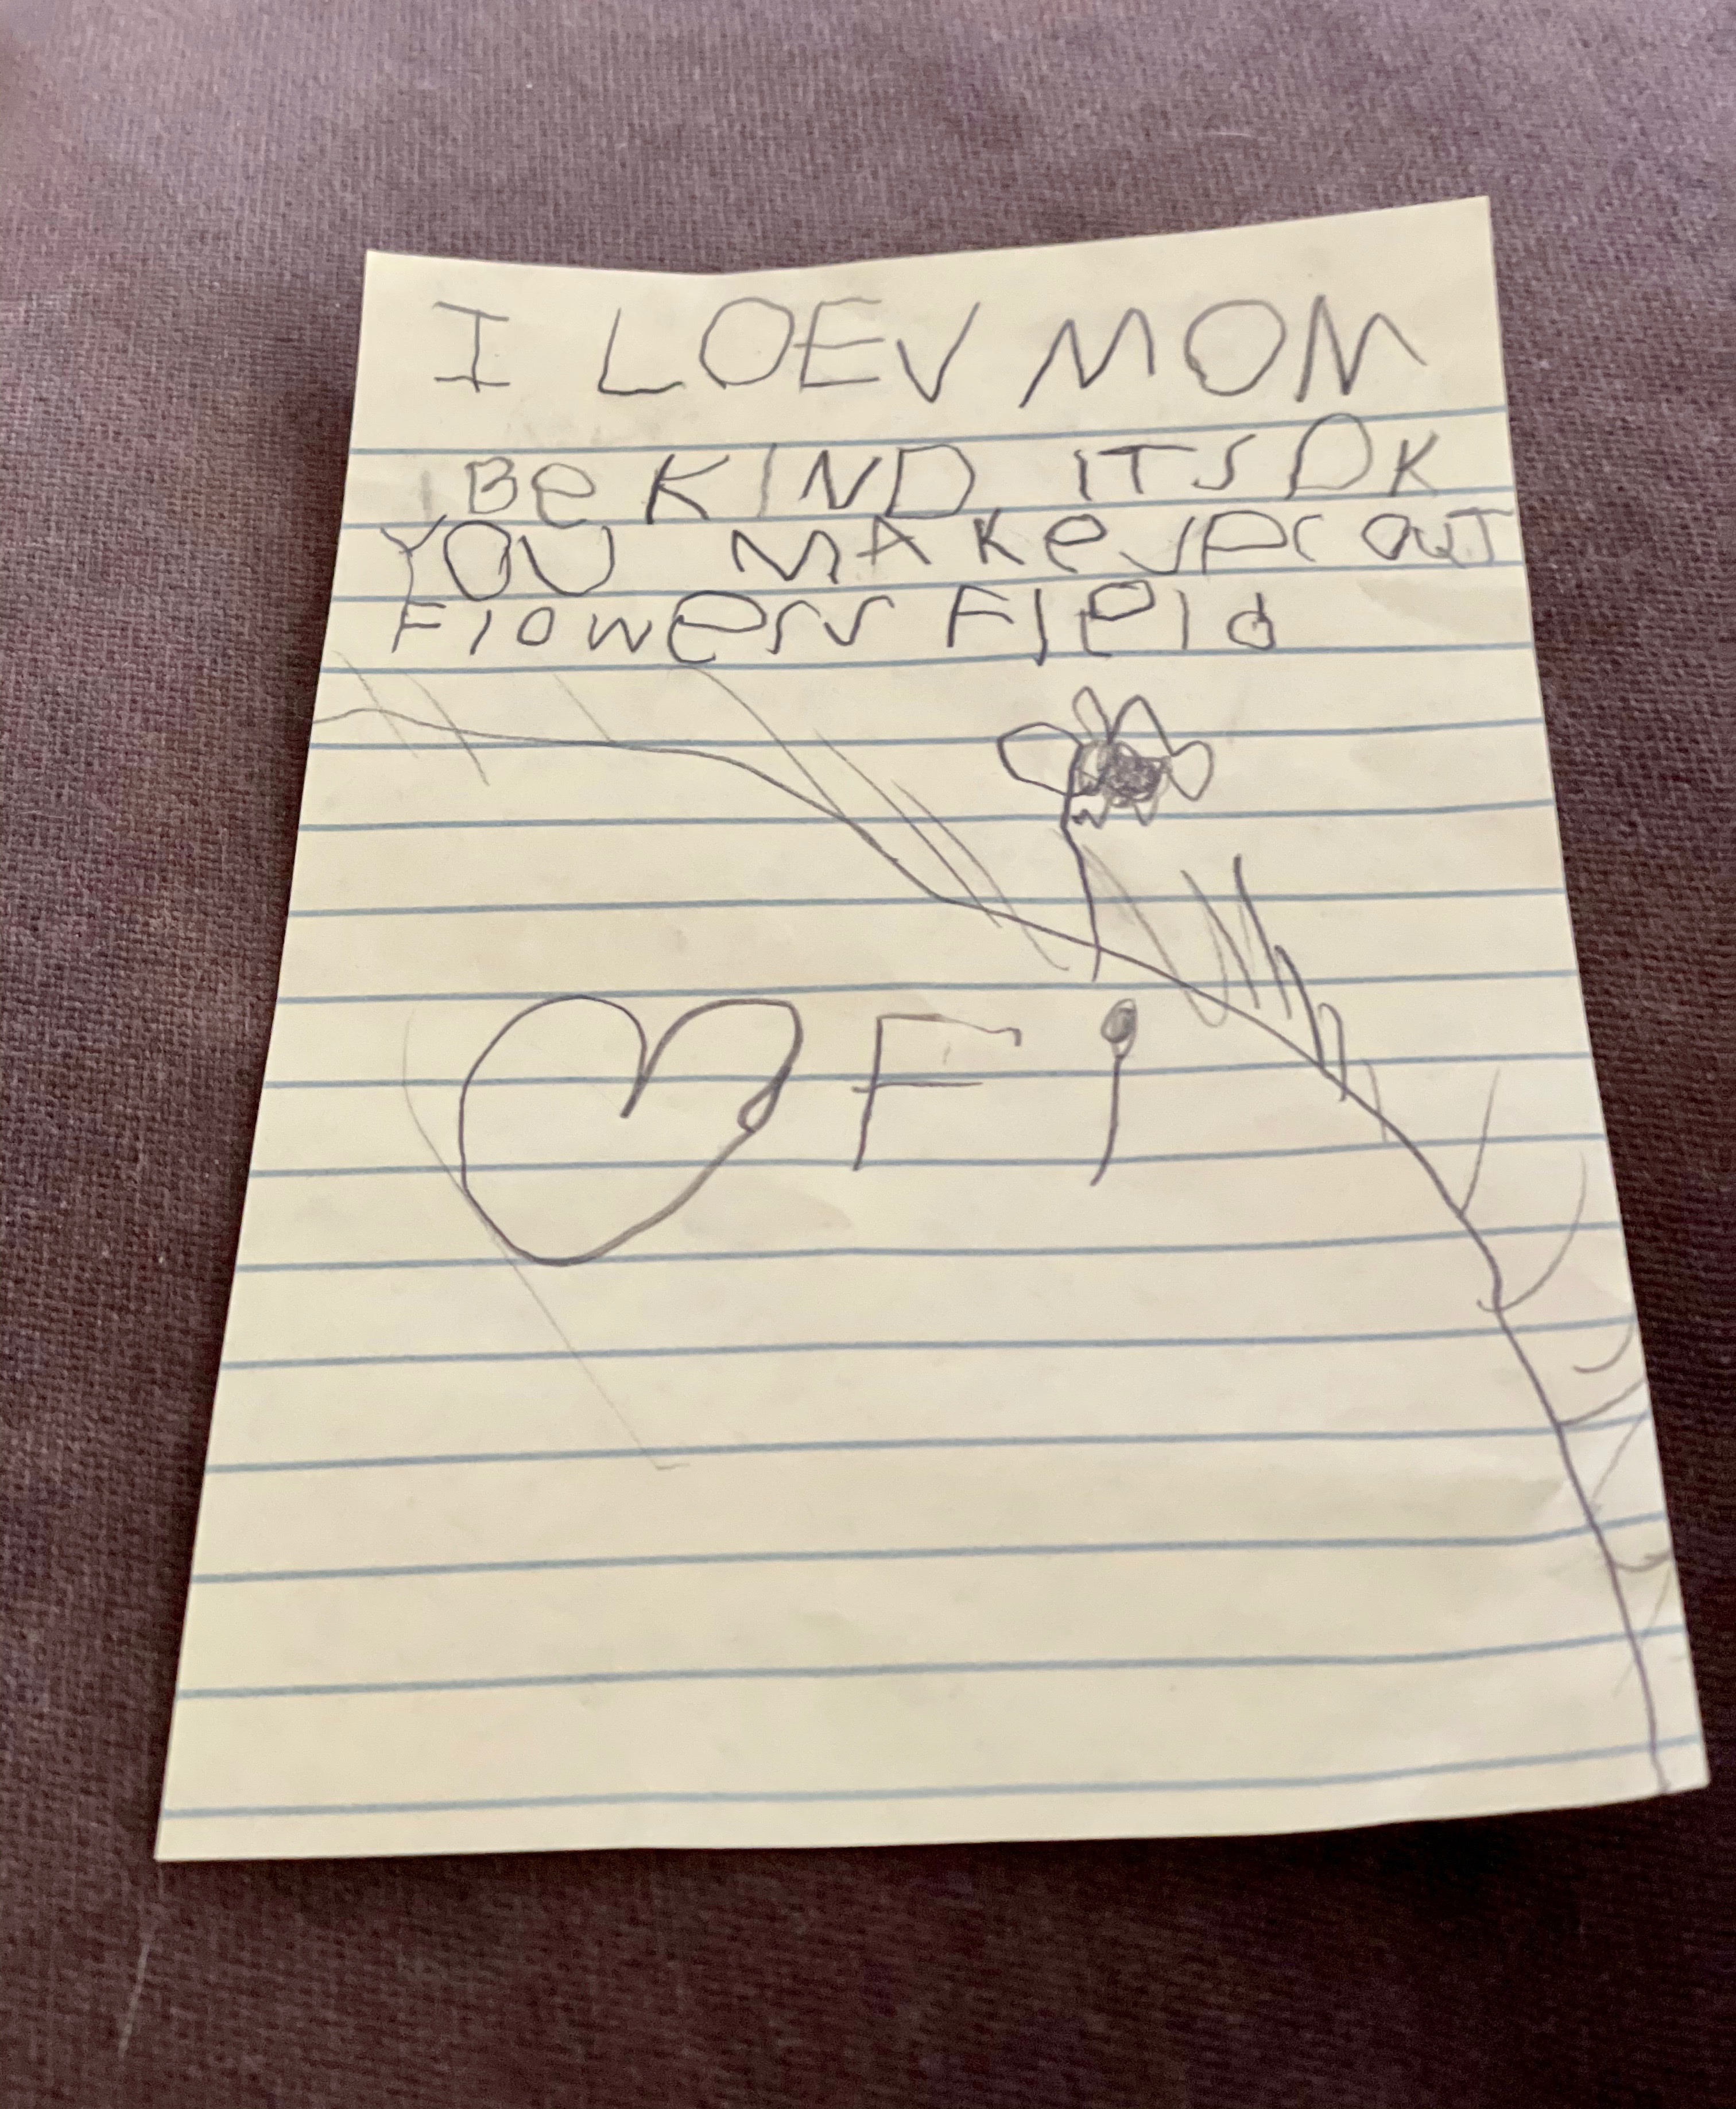 I LOEV MOM
Be KIND ITS OK
YOU MAKe SPrOUT
FlOWerS FIeld
Fi